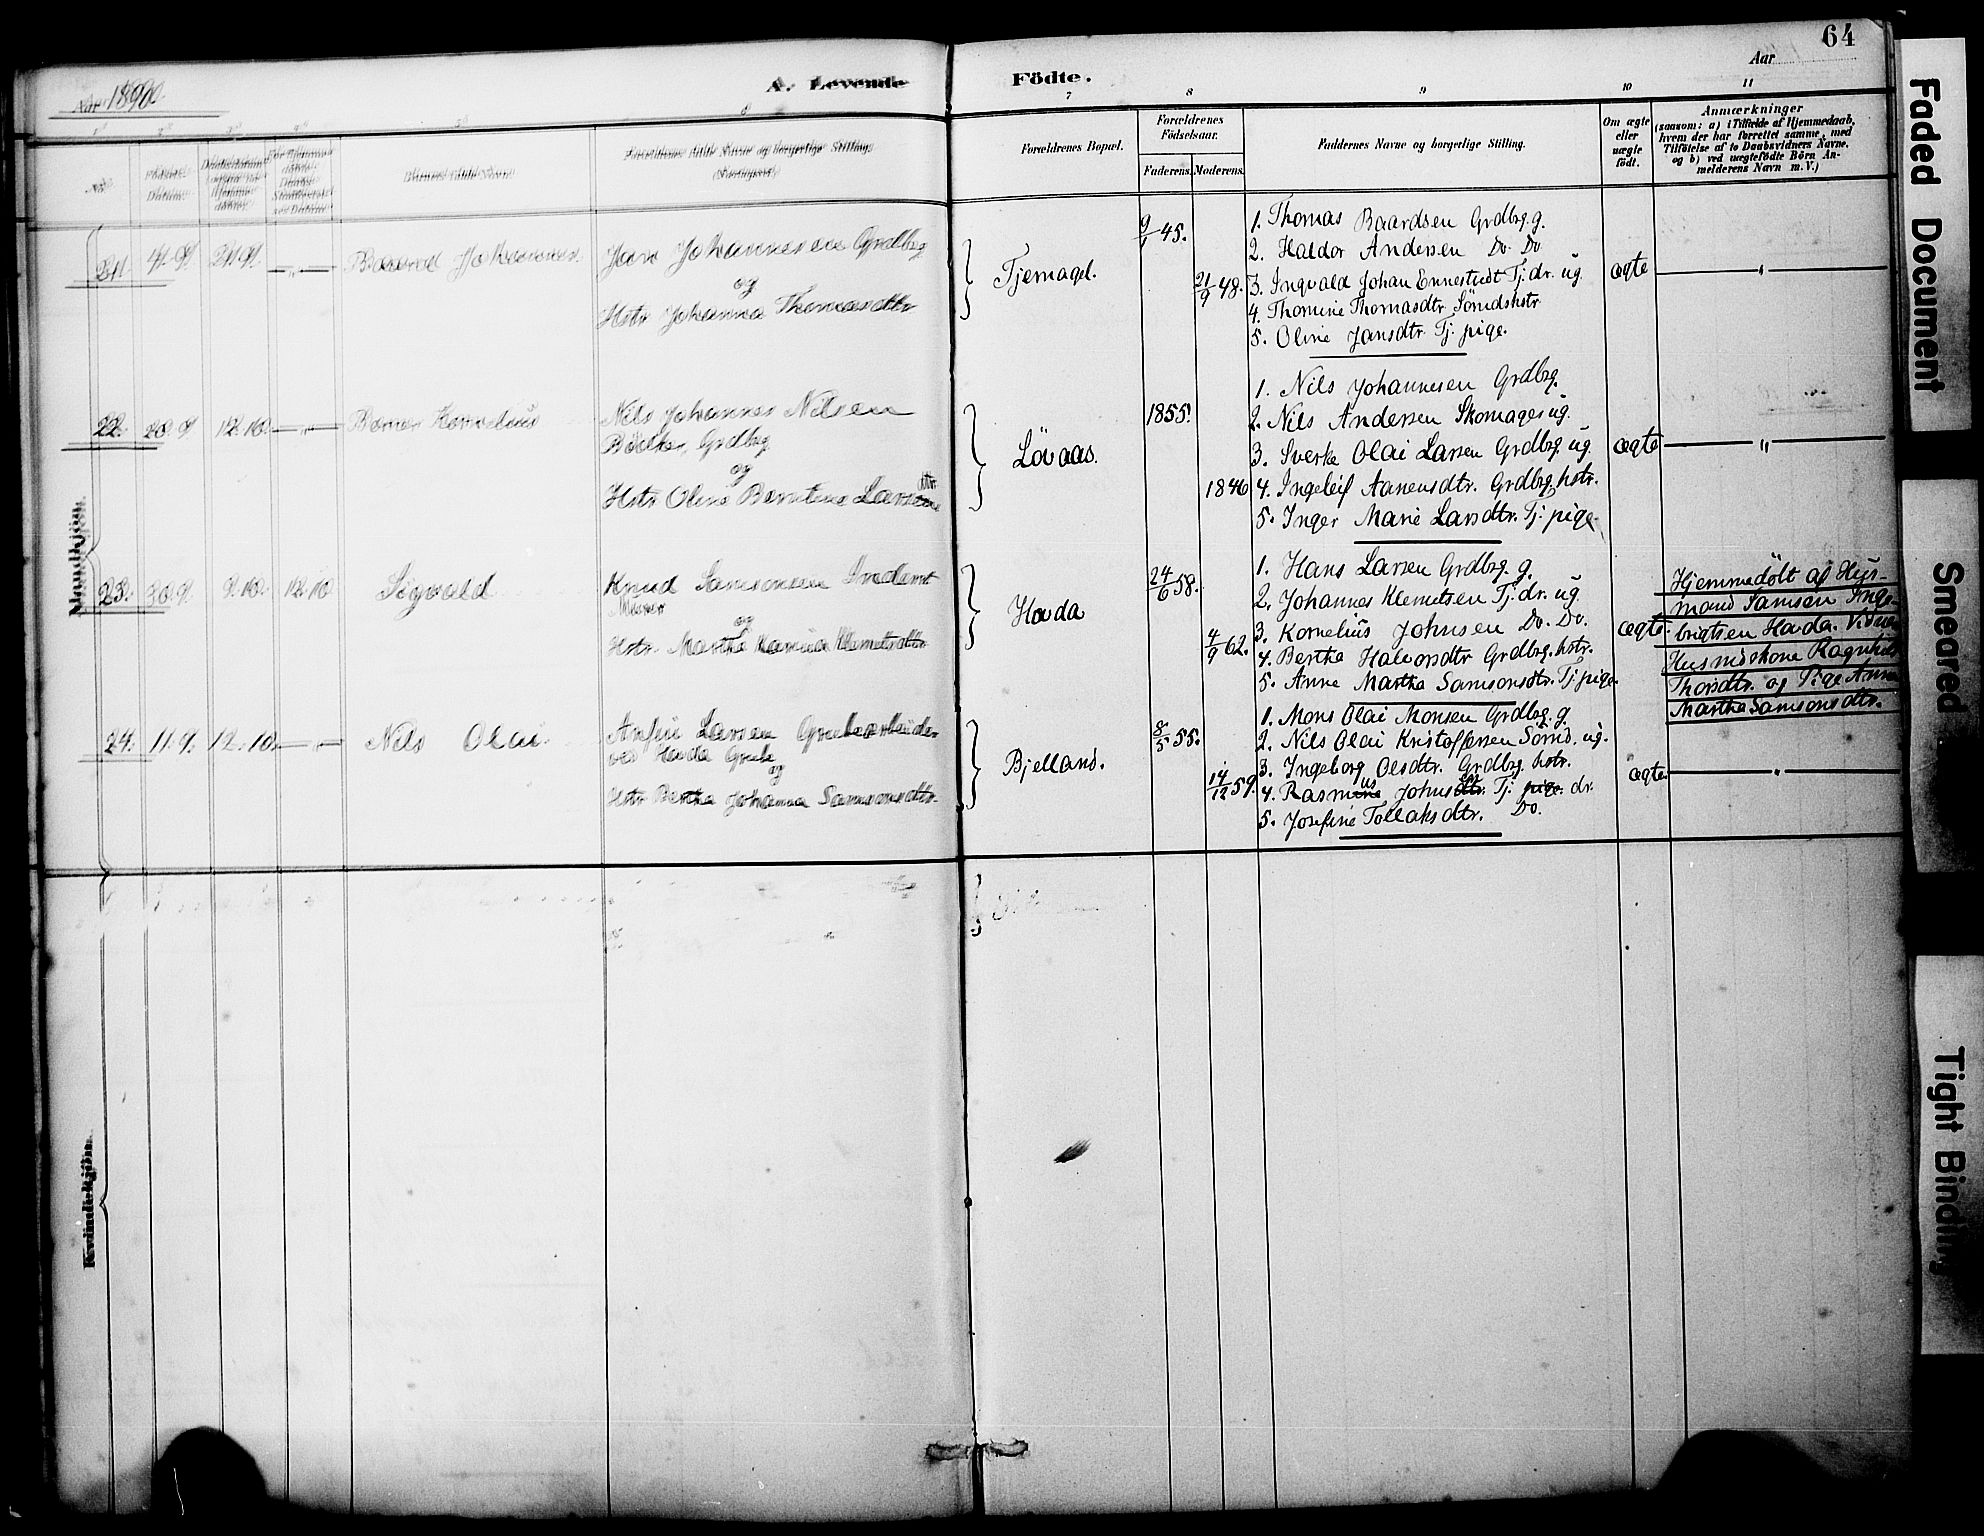 64
Aar 1890.
A. Levende Födte.
Aar
6
7
8
9
10
11
Födsels-
Datum.
Barnets fulde Navn
Forældrenes fulde Navne og borgerlige Stilling.
Forældrenes Bopæl.
Forældrenes
Födselsaar.
Faderens.
Moderens.
Faddernes Navne og borgerlige Stilling.
Om ægte
eller
uægte
födt.
Anmærkninger
(saasom: a) i Tilfælde af Hjemmedaab,
hvem der har forrettet samme, med
Tilföielse af to Daabsvidners Navne,
og b) ved uægtefödte Börn An-
melderens Navn m. V.)
Mandkjön.
21.
4.9.
21.9.
—„—
Baard Johannes.
Jan Johannesen Grdbrg
og
Hstr Johanna Thomasdtr
Tjernagel.
9/1 45.
21/9 48.
1. Thomas Baardsen Grdbrg. g.
2. Haldor Andersen Do. Do
3. Ingvald Johan Ennestvedt Tj. dr. ug
4. Thomine Thomasdtr. Sömdshstr
5. Oline Jansdtr. Tj. pige.
ægte
—„—
22.
28.9
12.10.
—„—
Berner Kornelius
Nils Johannes Nilsen
Bödker, Grdbrg
og
Hstr Oline Berntine Larsdtr
Lövaas.
1855.
1846
1. Nils Johannesen Grdbrg.
2. Nils Andersen Skomager ug.
3. Sverke Olai Larsen Grdbrg. ug.
4. Ingeleif Aanensdtr. Grdbrg. hstr.
5. Inger Marie Larsdtr. Tj. pige.
ægte
—„—
23.
30.9.
9.10.
12.10
Sigvald
Knud Samsonsen Inderst
Murer
og
Hstr. Martha Klemetsdtr
Hovda
24/6 58.
4/9 62.
1. Hans Larsen Grdbrg. g.
2. Johannes Klemetsen Tj. dr. ug.
3. Kornelius Johnsen Do. Do.
4. Bertha Halvorsdtr Grdbrg. hstr.
5. Anne Martha Samsonsdtr. Tj pige.
ægte.
Hjemmedöbt af Hus-
mand Samson Inge-
brigtsen Hovda. Vidner
Husmdskone Ragnhild
Thorsdtr. og Pige Anna
Martha Samsonsdtr.
24.
11.9.
12.10
—„—
Nils Olai.
Anfin Larsen Grubearbeider
ved Hovda Grube
og
Hstr Bertha Johanna Samsonsdtr.
Bjelland.
8/5 55.
14/12 59.
1. Mons Olai Monsen Grdbrg. g.
2. Nils Olai Kristoffersen Sömd. ug.
3. Ingeborg Olsdtr. Grdbrg. hstr.
4. Rasmus Johnsdtr. Tj. pige. dr.
5. Josefine Tollaksdtr. Do.
ægte.
—„—
Kvindekjön.
Faded Document
Smeared
Tight Binding